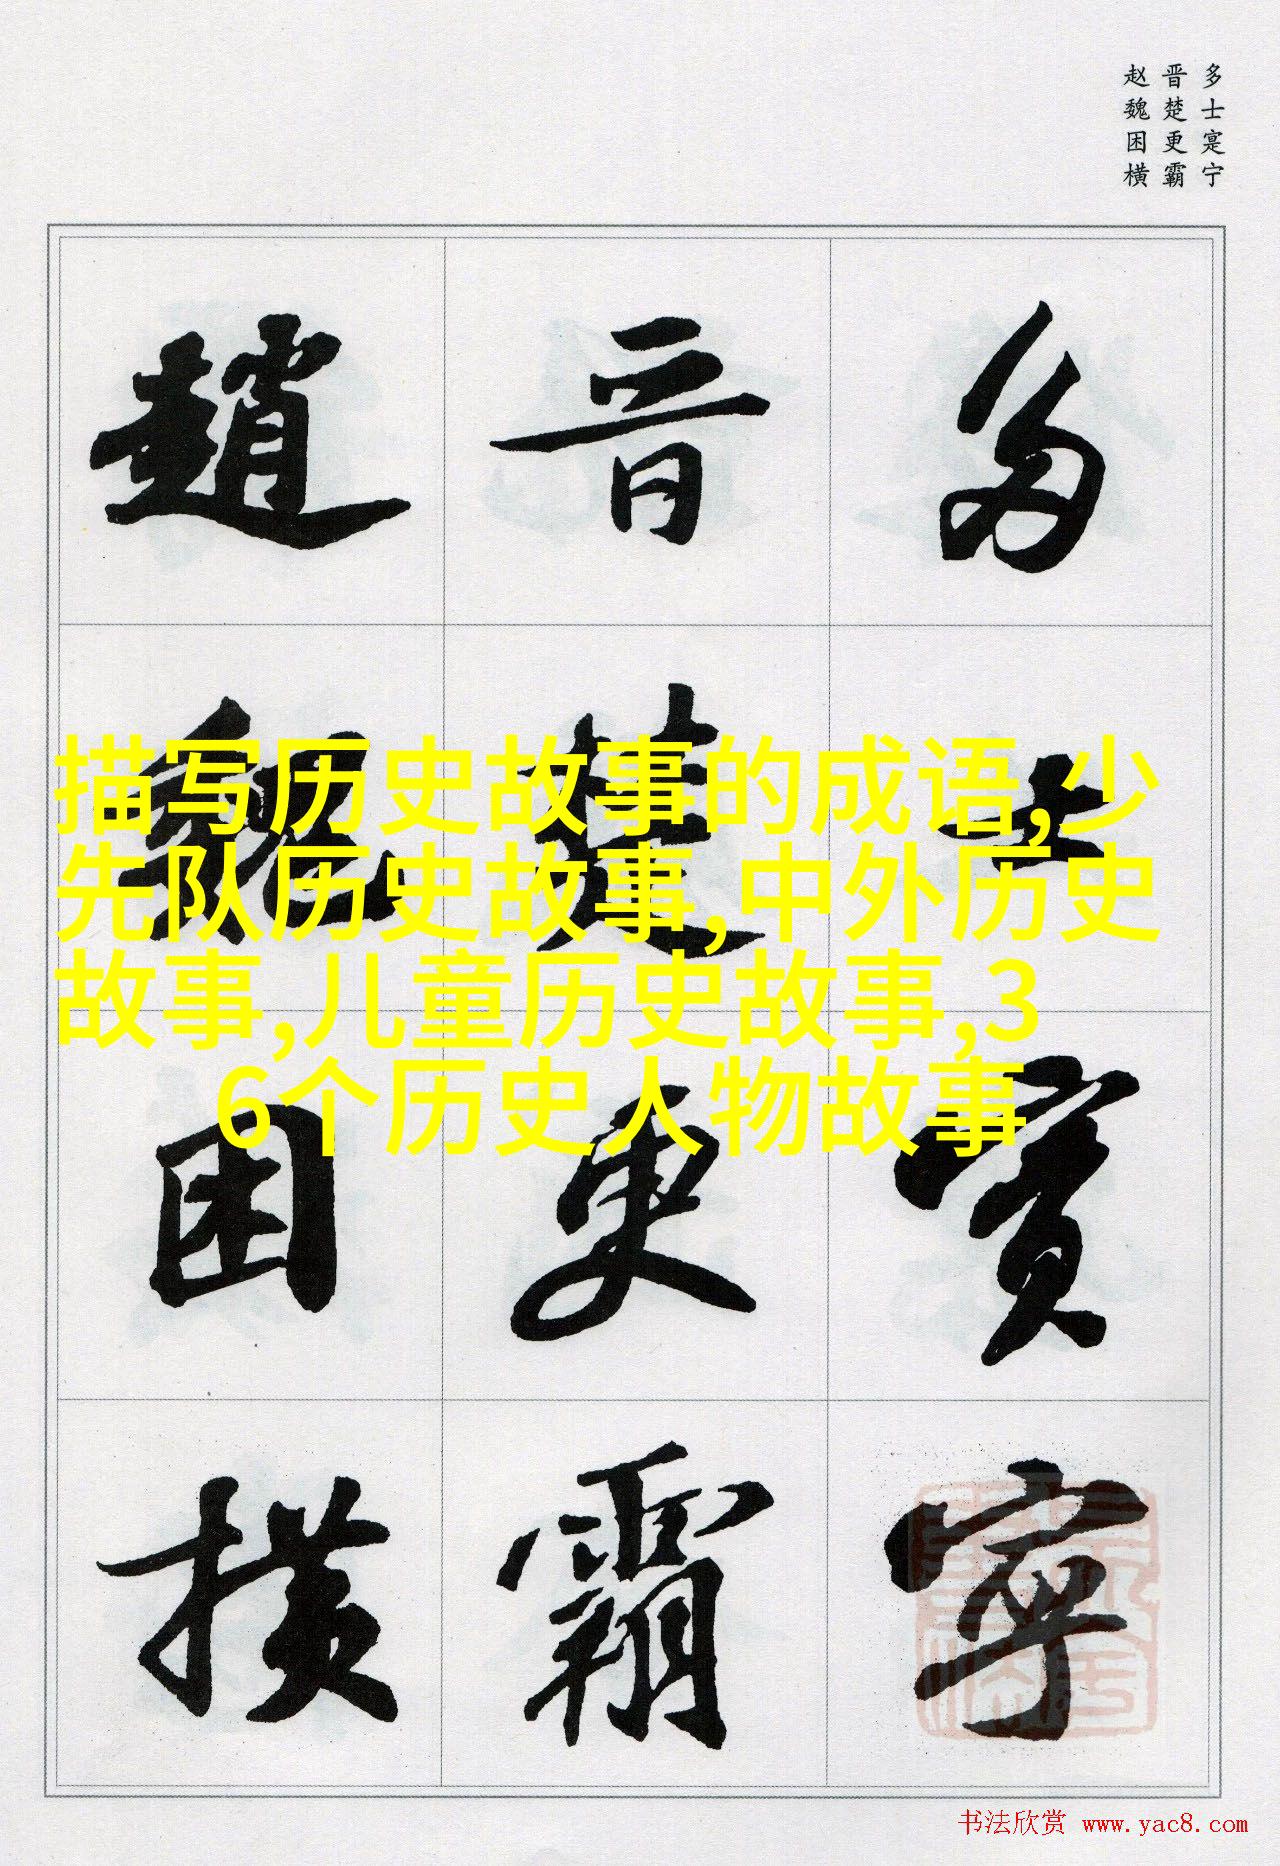 多士寔宁
晋楚更霸
赵魏困横
多士寔寧
晋楚更霸
趙魏困横
描写历史故事的成语,少
先队历史故事,中外历史
故事,儿童历史故事,3
6个历史人物故事
书法欣赏 www.yac8.com